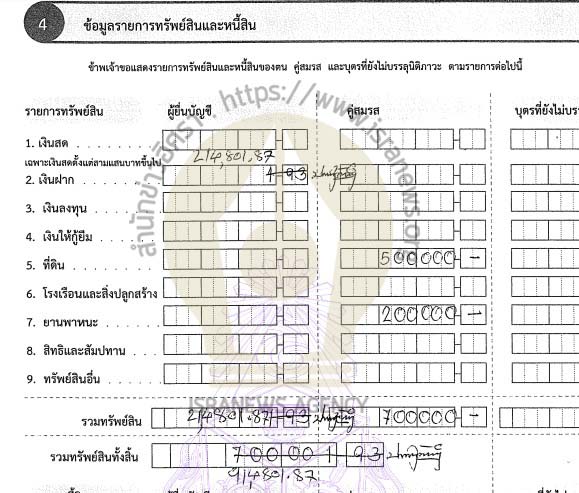 4 ข้อมูลรายการทรัพย์สินและหนี้สิน
ข้าพเจ้าขอแสดงรายการทรัพย์สินและหนี้สินของตน คู่สมรส และบุตรที่ยังไม่บรรลุนิติภาวะ ตามรายการต่อไปนี้
รายการทรัพย์สิน ผู้ยื่นบัญชี คู่สมรส บุตรที่ยังไม่บร
1. เงินสด
เฉพาะเงินสดตั้งแต่สามแสนบาทขึ้นไป 214,801.87
2. เงินฝาก 1 93
3. เงินลงทุน
4. เงินให้กู้ยืม
5. ที่ดิน 500000 -
6. โรงเรือนและสิ่งปลูกสร้าง
7. ยานพาหนะ 200000 -
8. สิทธิและสัมปทาน
9. ทรัพย์สินอื่น
รวมทรัพย์สิน 214801.87 1 93 700000 -
รวมทรัพย์สินทั้งสิ้น 700001 93
914,801.87
สำนักข่าวอิศรา : https://www.isranews.org
ISRANEWS AGENCY